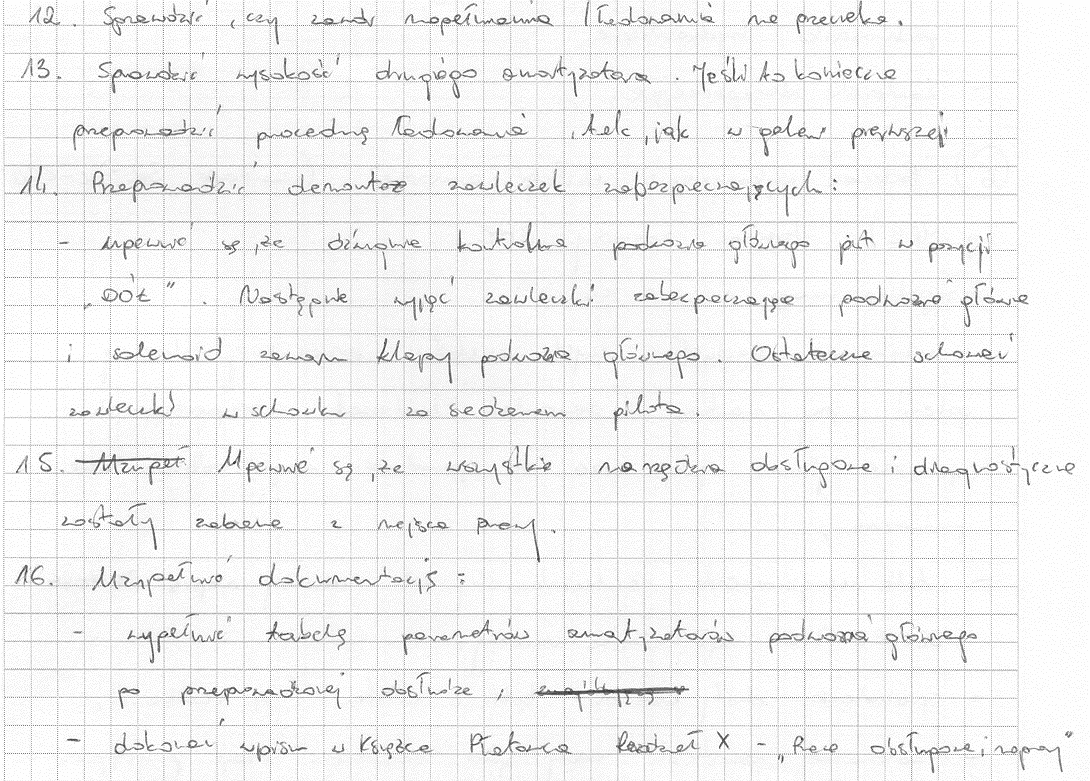 12. Sprawdzić, czy zawór napełniania / ładowania nie przecieka.
13. Sprawdzić wysokość drugiego amortyzatora. Jeśli to konieczne
przeprowadzić procedurę ładowania, tak, jak w goleni pierwszej
14. Przeprowadzić demontaż zawleczek zabezpieczających:
- upewnić się, że dźwignia kontrolna podwozia głównego jest w pozycji
„DÓŁ". Następnie wyjąć zawleczki zabezpieczające podwozie główne
i solenoid zamka klapy podwozia głównego. Ostatecznie schować
zawleczki w schowku za siedzeniem pilota.
15. Upewnić się, że wszystkie narzędzia obsługowe i diagnostyczne
zostały zabrane z miejsca pracy.
16. Uzupełnić dokumentację:
- wypełnić tabelę parametrów amortyzatorów podwozia głównego
po przeprowadzonej obsłudze,
- dokonać wpisu w Książce Płatowca Rozdział X - „Prace obsługowe i naprawy"